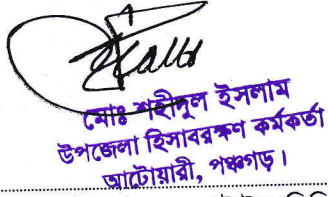 মোঃ শহীদুল ইসলাম
উপজেলা হিসাবরক্ষণ কর্মকর্তা
আটোয়ারী, পঞ্চগড়।